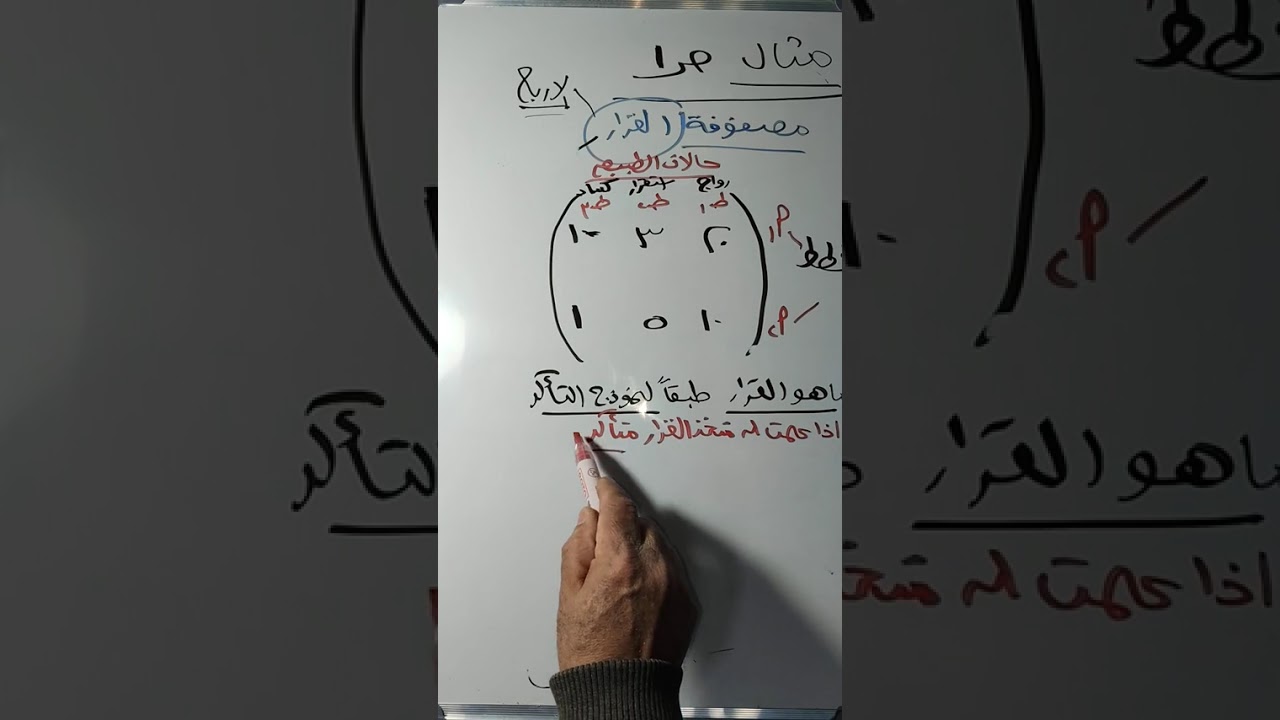 مثال
الارباح
مصفوفة القرار
حالات الطبيعة
رواج استقرار كساد
ط١ ط٢ ط٣
م١ ٢٠ ٣ ١٠-
خطط
م٢ ١٠ ٥ ١
ماهو القرار طبقاً لنموذج التأكد
اذا علمت ان متخذ القرار متأكد